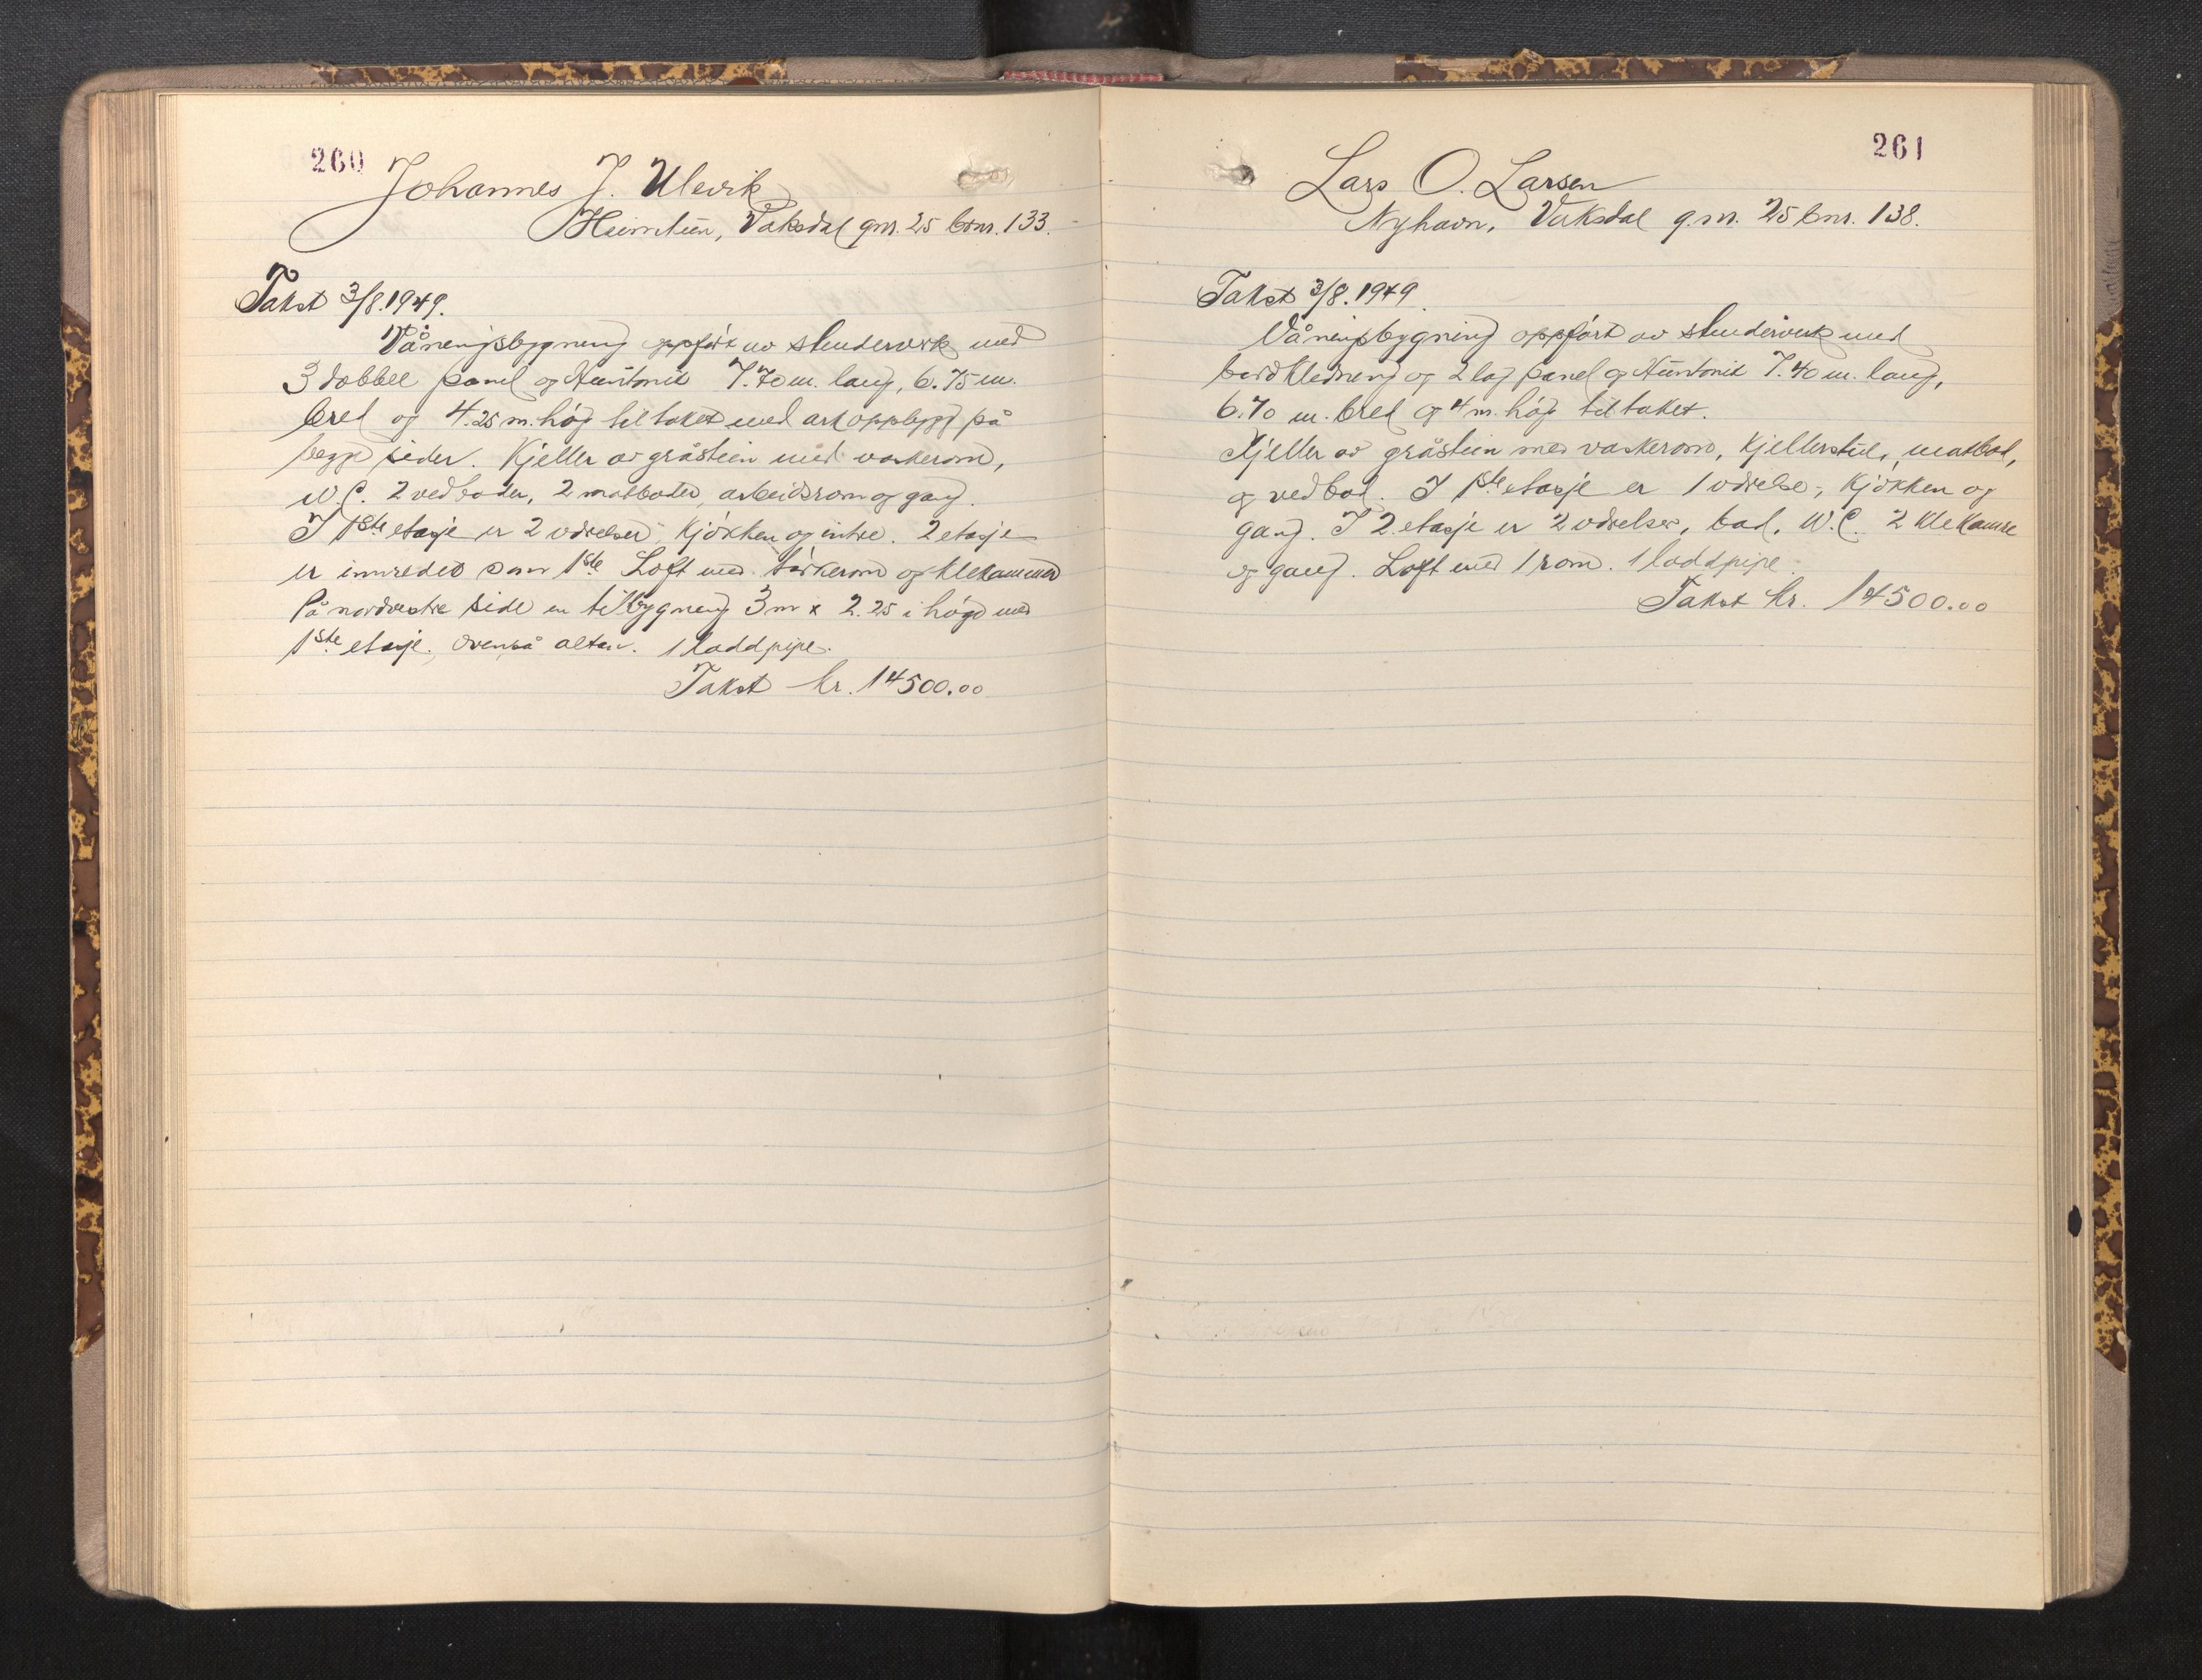 260
Johannes J. Ulevik
Heimtun, Vaksdal gnr. 25 bnr. 133.
Takst 3/8.1949.
Våningsbygning oppført av stenderverk med
3 dobbel panel og Huntonit 7.70 m. lang, 6.75 m.
bred og 4.25 m. høg til taket med ark oppbygg på
begge sider. Kjeller av gråstein med vaskerom,
W.C. 2 vedboder, 2 matboder, arbeidsrom og gang.
I 1ste etasje er 2 værelser, kjøkken og entre. 2 etasje
er innredet som 1ste Loft med tørkerom og klekammer
På nordvestre side en tilbygning 3 m x 2.25 i høgd med
1ste etasje. Ovenpå altan. 1 loddpipe.
Takst kr. 14500.00
261
Lars O. Larsen
Nyhavn, Vaksdal g.nr. 25 bnr. 138.
Takst 3/8.1949.
Våningsbygning oppført av stenderverk med
bordkledning og 2 lag panel og Huntonit 7.40 m. lang,
6.70 m. bred og 4 m. høg til taket.
Kjeller av gråstein med vaskerom, kjellerstue, matbod,
og vedbod. I 1ste etasje er 1 værelse, kjøkken og
gang. I 2 etasje er 2 værelser, bad, W.C. 2 klekamre
og gang. Loft med 1 rom. 1 loddpipe.
Takst kr. 14500.00